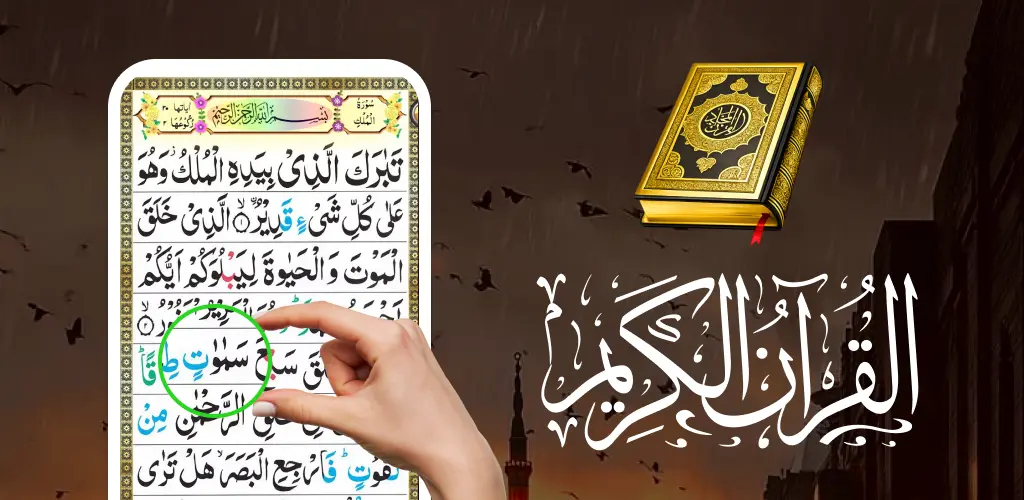 سُوْرَةُ الْمُلْكِ
بِسْمِ اللّٰهِ الرَّحْمٰنِ الرَّحِيْمِ
اٰيَاتُهَا ٣٠
رُكُوْعُهَا ٢
تَبٰرَكَ الَّذِیْ بِیَدِهِ الْمُلْكُ ؗ وَهُوَ
عَلٰی كُلِّ شَیْءٍ قَدِیْرُۙ ۟۱ الَّذِیْ خَلَقَ
الْمَوْتَ وَالْحَیٰوةَ لِیَبْلُوَكُمْ اَیُّكُمْ
سَبْعَ سَمٰوٰتٍ طِ قًا ؕ
خَلْقِ الرَّحْمٰنِ مِنْ
تَفٰوُتٍ ؕ فَارْجِعِ الْبَصَرَ هَلْ تَرٰی
القُرآنُ الكَرِيم